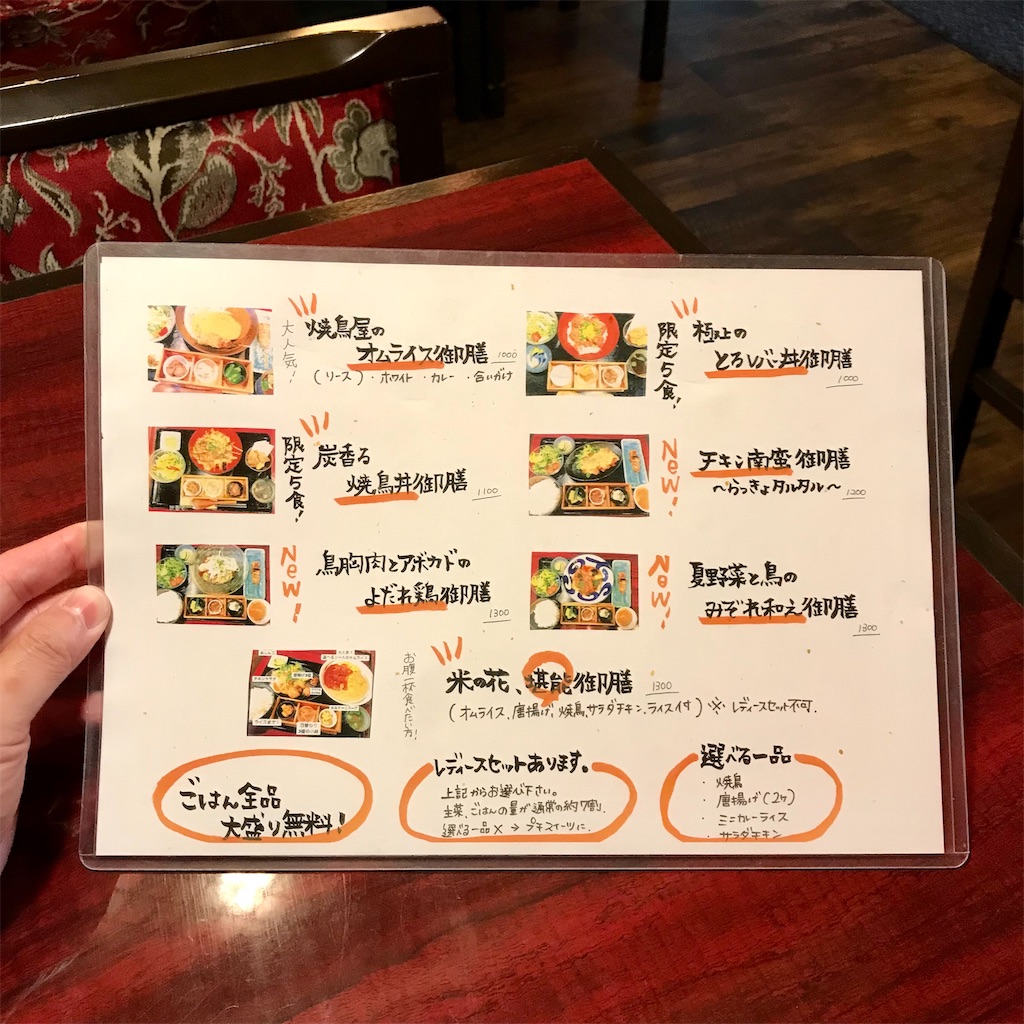 大人気!
焼鳥屋の
オムライス御膳 1000
(ソース)・ホワイト・カレー・合いがけ
限定5食!
極上の
とろレバー丼御膳
1000
限定5食!
炭香る
焼鳥丼御膳 1100
New!
チキン南蛮御膳
〜らっきょタルタル〜 1200
New!
鳥胸肉とアボカドの
よだれ鶏御膳
1300
New!
夏野菜と鳥の
みぞれ和え御膳
1300
お腹一杯食べたい方!
米の花、堪能御膳 1300
(オムライス、唐揚げ、焼鳥、サラダチキン、ライス付)※レディースセット不可.
ごはん全品
大盛り無料!
レディースセットあります。
上記からお選び下さい。
主菜、ごはんの量が通常の約7割.
選べる一品× → プチスイーツに.
選べる一品
・焼鳥
・唐揚げ(2ヶ)
・ミニカレーライス
・サラダチキン